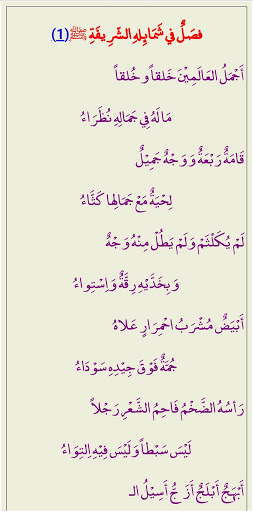 فصَلٌ في شَمَايِلِهِ الشّرِيفَةِ ﷺ(1)
أَجْمَلُ العَالَمِيْنَ خَلقاً و خُلقاً
مَا لَهُ فِي جَمَالِهِ نُظَرَاءُ
قَامَةٌ رَبْعَةٌ وَوَجْهٌ جَمِيْلٌ
لِحْيَةٌ مَعْ جَمَالِها كَثَّاءُ
لَمْ يُكَلْثَمْ وَلَمْ يَطُلْ مِنْهُ وَجْهٌ
وَبِخَدَّيْهِ رِقَّةٌ وَاِسْتِواءُ
أَبْيَضٌ مُشْرَبُ احْمِرَارٍ عَلاهُ
جُمَّةٌ فَوْقَ جِيْدِهِ سَوْدَاءُ
رَأسُهُ الضَّخْمُ فَاحِمُ الشَّعْرِ رَجْلاً
لَيْسَ سَبْطاً وَلَيْسَ فِيْهِ اِلتِوَاءُ
أَبْهَجٌ أَبْلَجٌ أَزَجُّ أَسِيْلُ الـ